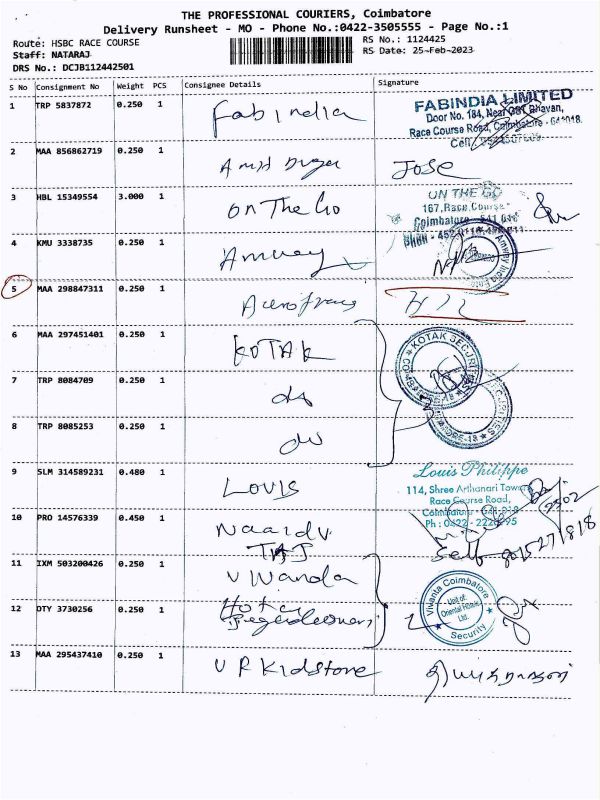 THE PROFESSIONAL COURIERS, Coimbatore
Delivery Runsheet - MO - Phone No.:0422-3505555 - Page No.:1
Route: HSBC RACE COURSE
RS No.: 1124425
Staff: NATARAJ
RS Date: 25-Feb-2023
DRS No.: DCJB112442501
S No Consignment No Weight PCS Consignee Details Signature
1 TRP 5837872 0.250 1 Fabindia
FABINDIA LIMITED
Door No. 184, Near GST Bhavan,
Race Course Road, Coimbatore - 641018.
Cell:
2 MAA 856862719 0.250 1 JOSE
3 HBL 15349554 3.000 1 On The Go
ON THE GO
167, Race Course
Coimbatore - 641 018
4 KMU 3338735 0.250 1 Amway
Amway India
5 MAA 298847311 0.250 1
6 MAA 297451401 0.250 1 KOTAK
KOTAK SECURITIES
7 TRP 8084709 0.250 1 do
8 TRP 8085253 0.250 1 do
9 SLM 314589231 0.480 1 LOUIS
Louis Philippe
114, Shree Arthanari Towers
Race Course Road,
Coimbatore - 641 018
10 PRO 14576339 0.450 1
TAJ
Self
11 IXM 503200426 0.250 1
12 DTY 3730256 0.250 1 Hotel
Vivanta Coimbatore
Unit of:
Oriental Hotels
Ltd.
Security
13 MAA 295437410 0.250 1 V R Kidstone